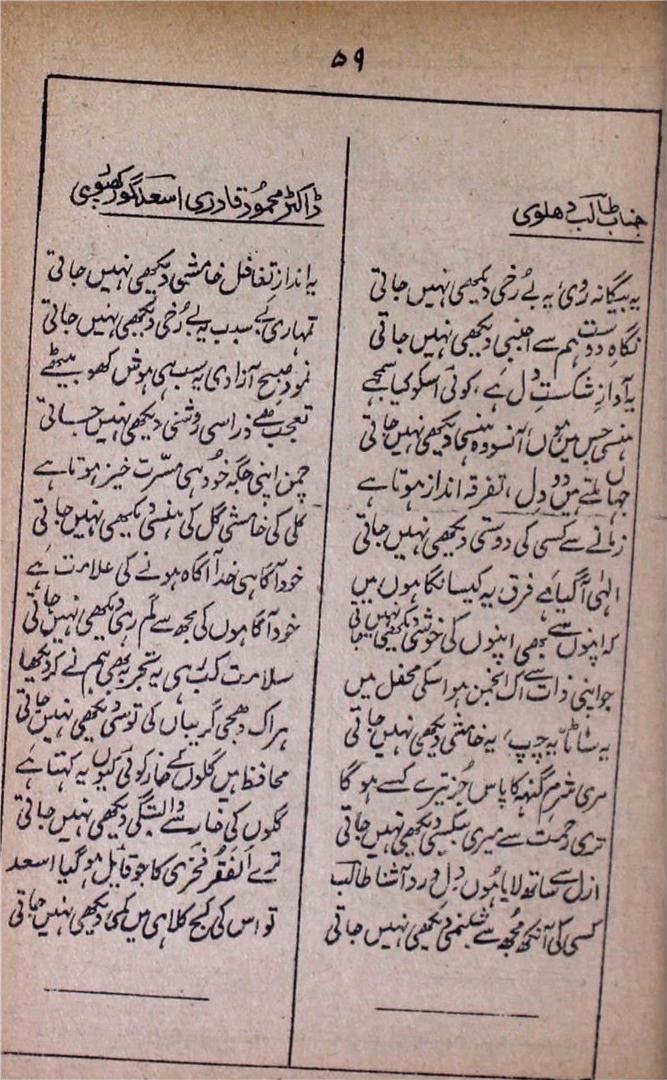 ۵۹
جناب طالب دھلوی
یہ بیگانہ روی یہ بے رُخی دیکھی نہیں جاتی
نگاہِ دوست ہم سے اجنبی دیکھی نہیں جاتی
یہ آوازِ شکستِ دل ہے، کوئی اسکو کیا سمجھے
ہنسی جس میں ہوں آنسو وہ ہنسی دیکھی نہیں جاتی
جہاں ملتے ہیں دو دِل، تفرقہ انداز ہوتا ہے
زمانے سے کسی کی دوستی دیکھی نہیں جاتی
الٰہی آگیا ہے فرق یہ کیسا نگاہوں میں
کہ اپنوں سے بھی اپنوں کی خوشی دیکھی نہیں جاتی
جو اپنی ذات سے اک انجمن ہو اسکی محفل میں
یہ سناٹا یہ چپ، یہ خامشی دیکھی نہیں جاتی
مری شرمِ گنہ کا پاس جُز تیرے کسے ہوگا
تری رحمت سے میری بیکسی دیکھی نہیں جاتی
ازل سے ساتھ لایا ہُوں دِل درد آشنا طالب
کسی کی آنکھ مجھ سے شبنمی دیکھی نہیں جاتی
ڈاکٹر محمُود قادری اسعد گورکھپوری
یہ اندازِ تغافل خامشی دیکھی نہیں جاتی
تمہاری بے سبب یہ بے رُخی دیکھی نہیں جاتی
نمودِ صبحِ آزادی پہ سب ہی ہوش کھو بیٹھے
تعجب ہے ذرا سی روشنی دیکھی نہیں جاتی
چمن اپنی جگہ خُود ہی مسّرت خیز ہوتا ہے
کلی کی خامشی گل کی ہنسی دیکھی نہیں جاتی
خود آگاہی خدا آگاہ ہونے کی علامت ہے
خود آگاہوں کی مجھ سے گم رہی دیکھی نہیں جاتی
سلامت کب رہی یہ تجربہ بھی ہم نے کر دیکھا
ہر اک دھجی گریباں کی تو سی دیکھی نہیں جاتی
محافظ ہیں گلوں کے خار کوئی کیوں یہ کہتا ہے
گلوں کی خار سے وابستگی دیکھی نہیں جاتی
ترے الفَقر فَخری کا جو قائل ہو گیا اسعد
تو اس کی کج کلاہی میں کمی دیکھی نہیں جاتی